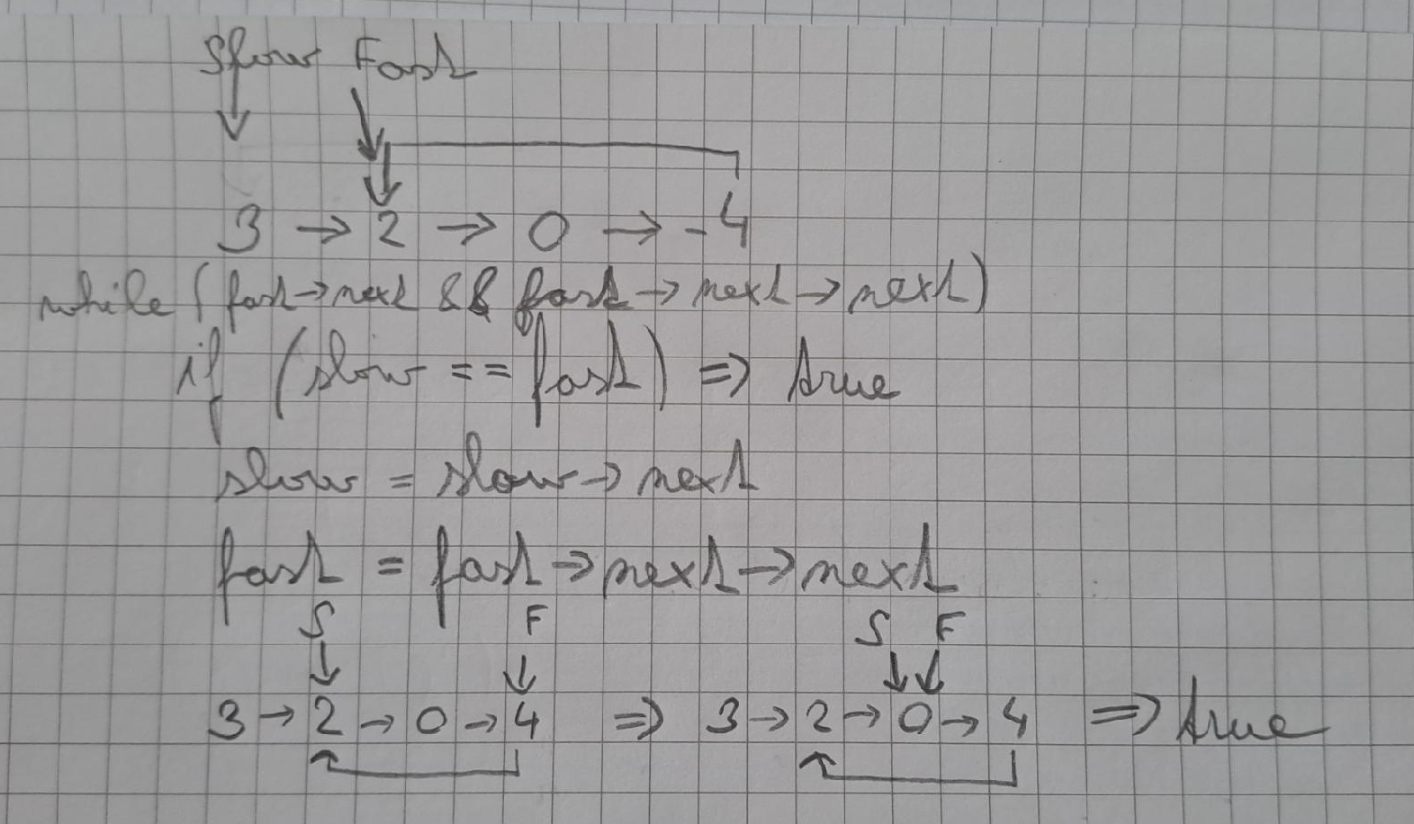 Slow Fast
3 → 2 → 0 → -4
while (fast→next && fast→next→next)
if (slow == fast) => true
slow = slow→next
fast = fast→next→next
S F S F
3 → 2 → 0 → 4 => 3 → 2 → 0 → 4 => true